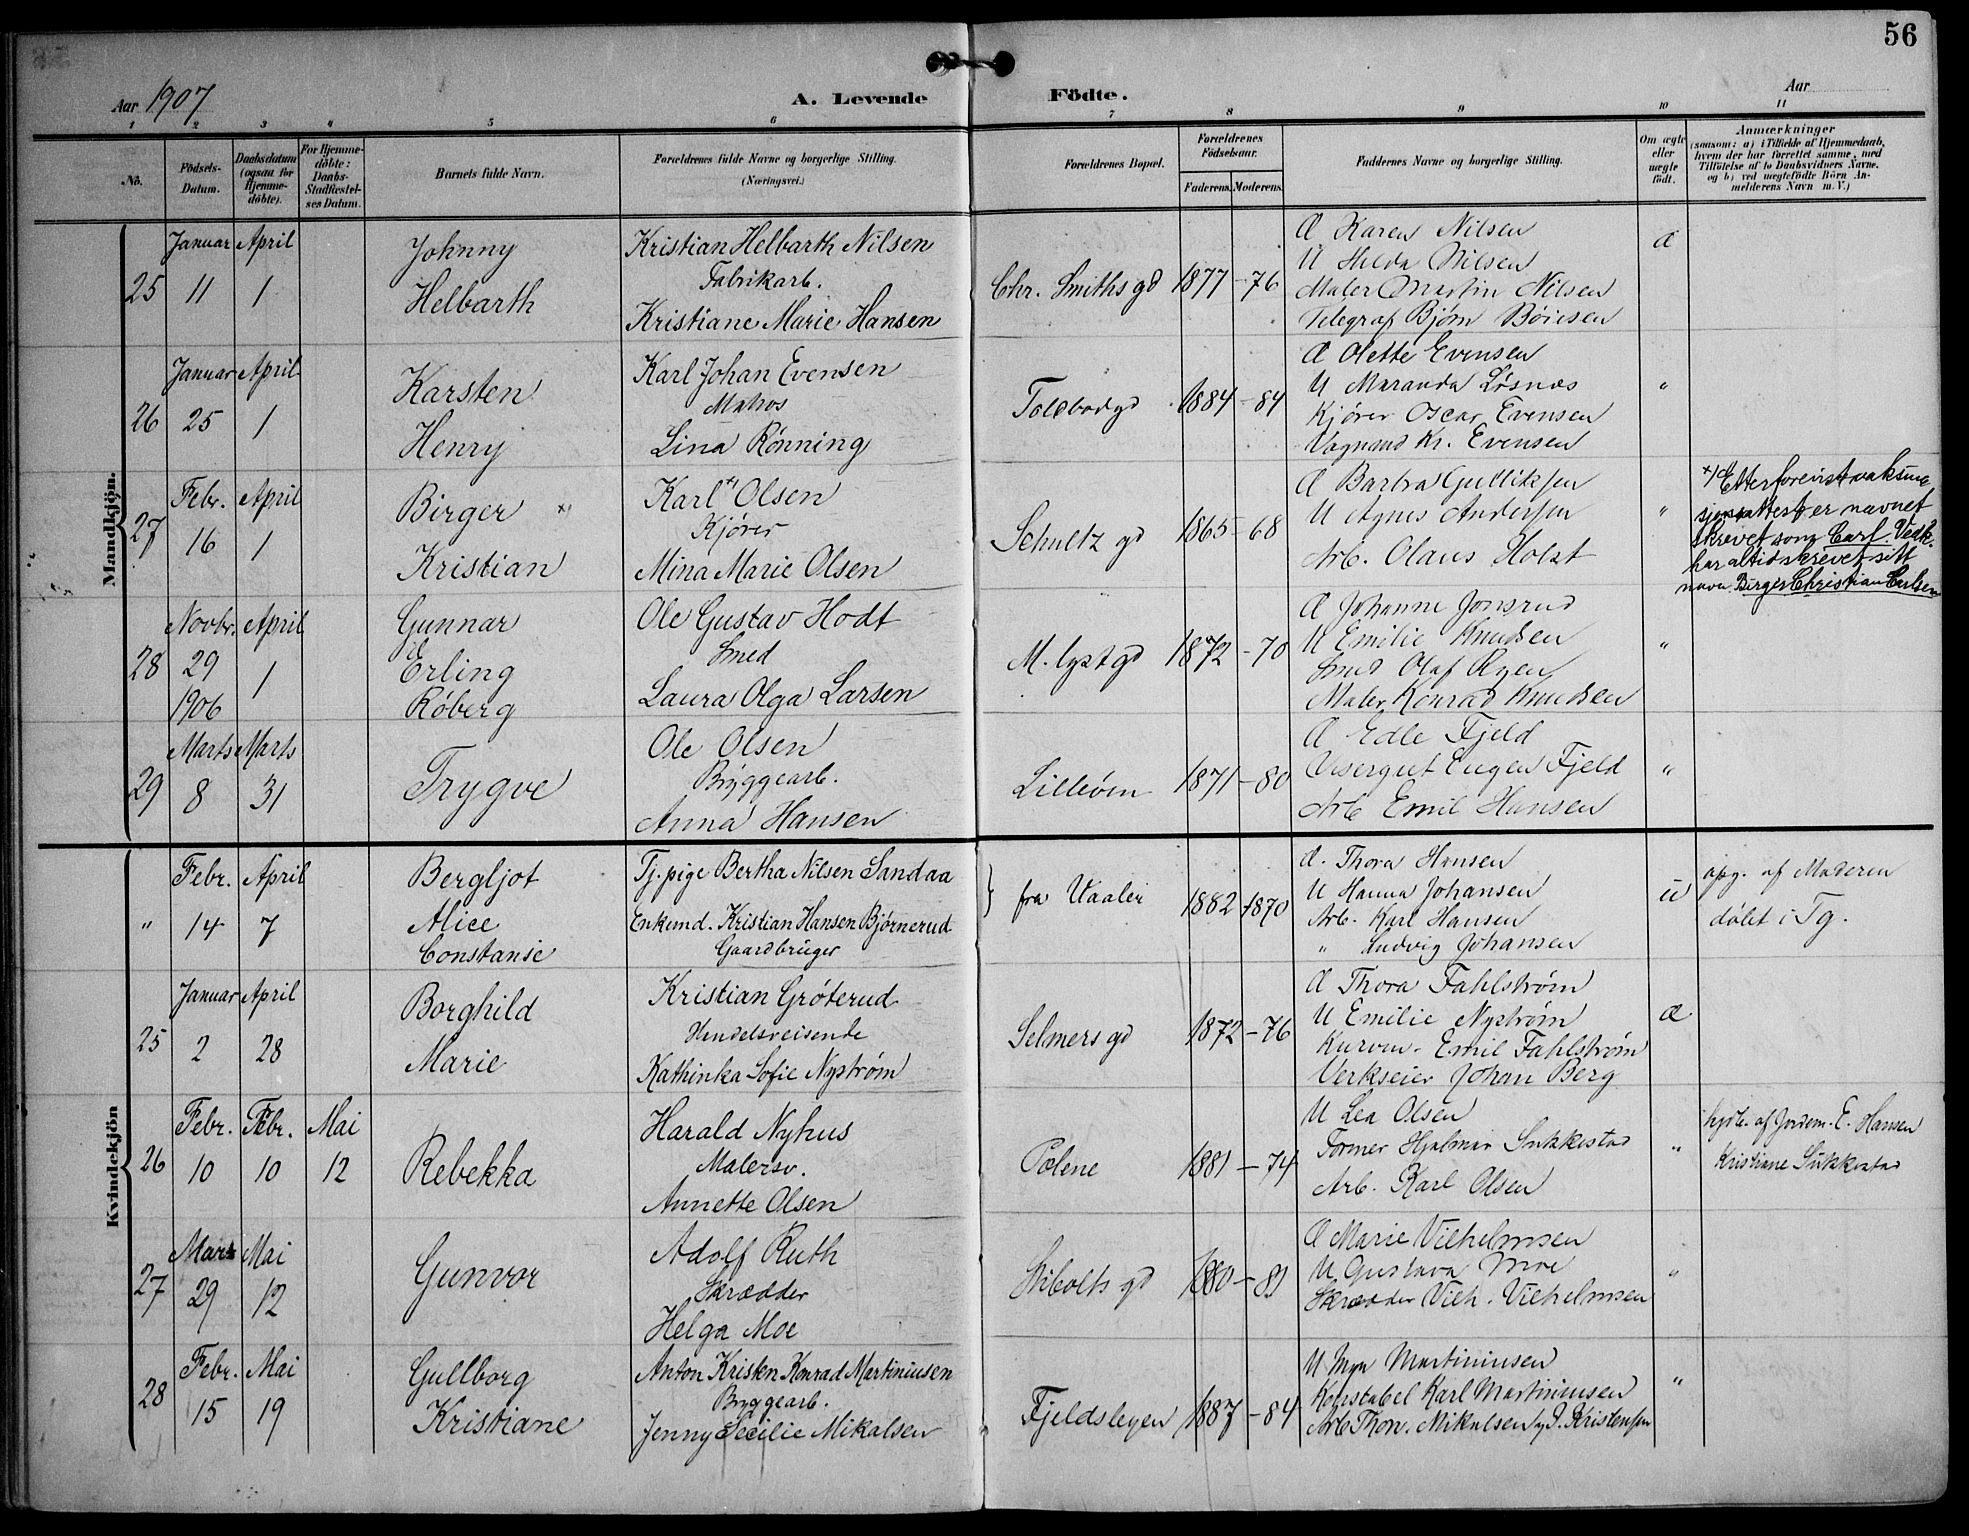 56
Aar 1907
A. Levende Födte.
Aar
1 2 3 4 5 6 7 8 9 10 11
No.
Födsels-Datum.
Daabsdatum (ogsaa for Hjemme-döbte).
For Hjemme-döbte: Daabs-Stadfæstel-ses Datum.
Barnets fulde Navn.
Forældrenes fulde Navne og borgerlige Stilling. (Næringsvei.)
Forældrenes Bopæl.
Forældrenes Födselsaar.
Faderens. Moderens.
Faddernes Navne og borgerlige Stilling.
Om ægte eller uægte födt.
Anmærkninger
(saasom: a) i Tilfælde af Hjemmedaab, hvem der har forrettet samme, med Tilföielse af to Daabsvidners Navne, og b) ved uægtefödte Börn An-melderens Navn m. V.)
Mandkjön.
25
Januar 11
April 1
Johnny
Helbarth
Kristian Helbarth Nilsen
Fabrikarb.
Kristiane Marie Hansen
Chr. Smiths gd
1877 - 76
Æ Karen Nilsen
U Hilda Nilsen
Maler Martin Nilsen
Telegraf Bjørn Böiesen
æ
26
Januar 25
April 1
Karsten
Henry
Karl Johan Evensen
Matros
Lina Rønning
Toldbodgd
1884 - 84
Æ Olette Evensen
U Maranda Løsnæs
Kjører Oscar Evensen
Vognmd Kr. Evensen
"
27
Febr. 16
April 1
Birger x)
Kristian
Karl x) Olsen
Kjører
Mina Marie Olsen
Schultz gd
1865 - 68
Æ Barbra Gulliksen
U Agnes Andersen
Arb. Olaus Holst
"
x) Etter forevist vaksina
sjonsattest er navnet
skrevet som Carl. Vedk.
har altid skrevet sitt
navn Birger Christian Carlsen
28
Novbr. 29 1906
April 1
Gunnar
Erling
Røberg
Ole Gustav Hodt
Smed
Laura Olga Larsen
M. lystgd
1872 - 70
Æ Johanne Jonsrud
U Emilie Knudsen
Smed Olaf Ryen
Maler Konrad Knudsen
"
29
Marts 8
Marts 31
Trygve
Ole Olsen
Bryggearb.
Anna Hansen
Lilleöen
1871 - 80
Æ Edle Fjeld
Visergut Eugen Fjeld
Arb Emil Hansen
"
Kvindekjön
"
Febr. 14
April 7
Bergljot
Alice
Constanse
Tj. pige Bertha Nilsen Sandaa
Enkemd. Kristian Hansen Bjørnerud
Gaardbruger
} fra Vaaler
1882 1870
Æ. Thora Hansen
U Hanna Johansen
Arb. Karl Hansen
" Ludvig Johansen
u
opg. af Moderen
döbt i Tg.
25
Januar 2
April 28
Borghild
Marie
Kristian Gröterud
Handelsreisende
Kathinka Sofie Nyström
Selmers gd
1872 - 76
Æ Thora Fahlstrøm
U Emilie Nystrøm
Kurvm. Emil Fahlstrøm
Verkseier Johan Berg
æ
26
Febr. 10
Febr. 10
Mai 12
Rebekka
Harald Nyhus
Malersv.
Annette Olsen
Pølene
1881 - 74
U Lea Olsen
Former Hjalmar Sukkestad
Arb. Karl Olsen
"
hjdb. af Jordem. E. Hansen
Kristiane Sukkestad
27
Mars 29
Mai 12
Gunvor
Adolf Ruth
Skrædder
Helga Moe
Stibolts gd
1880 - 81
Æ Marie Vilhelmsen
U Gustava Moe
Skrædder Vilh. Vilhelmsen
"
28
Febr. 15
Mai 19
Gullborg
Kristiane
Anton Kristen Konrad Martiniusen
Bryggearb.
Jenny Cecilie Mikalsen
Fjeldsleyen
1887 - 84
U Martiniusen
Konstabel Karl Martiniusen
Arb Thorv. Mikalsen P. Kristensen
"